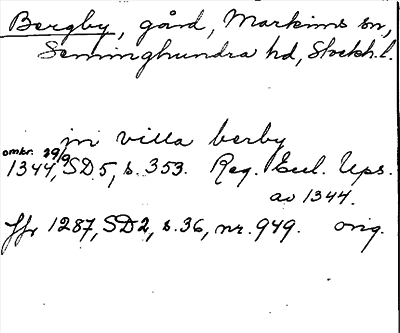 Bergby, gård, Markims sn,
Seminghundra hd, Stockh.l.
in villa berby
omkr. 29/9
1344, SD 5, s. 353. Reg. Eccl. Ups.
av 1344.
Jfr 1287, SD 2, s. 36, nr. 949. orig.